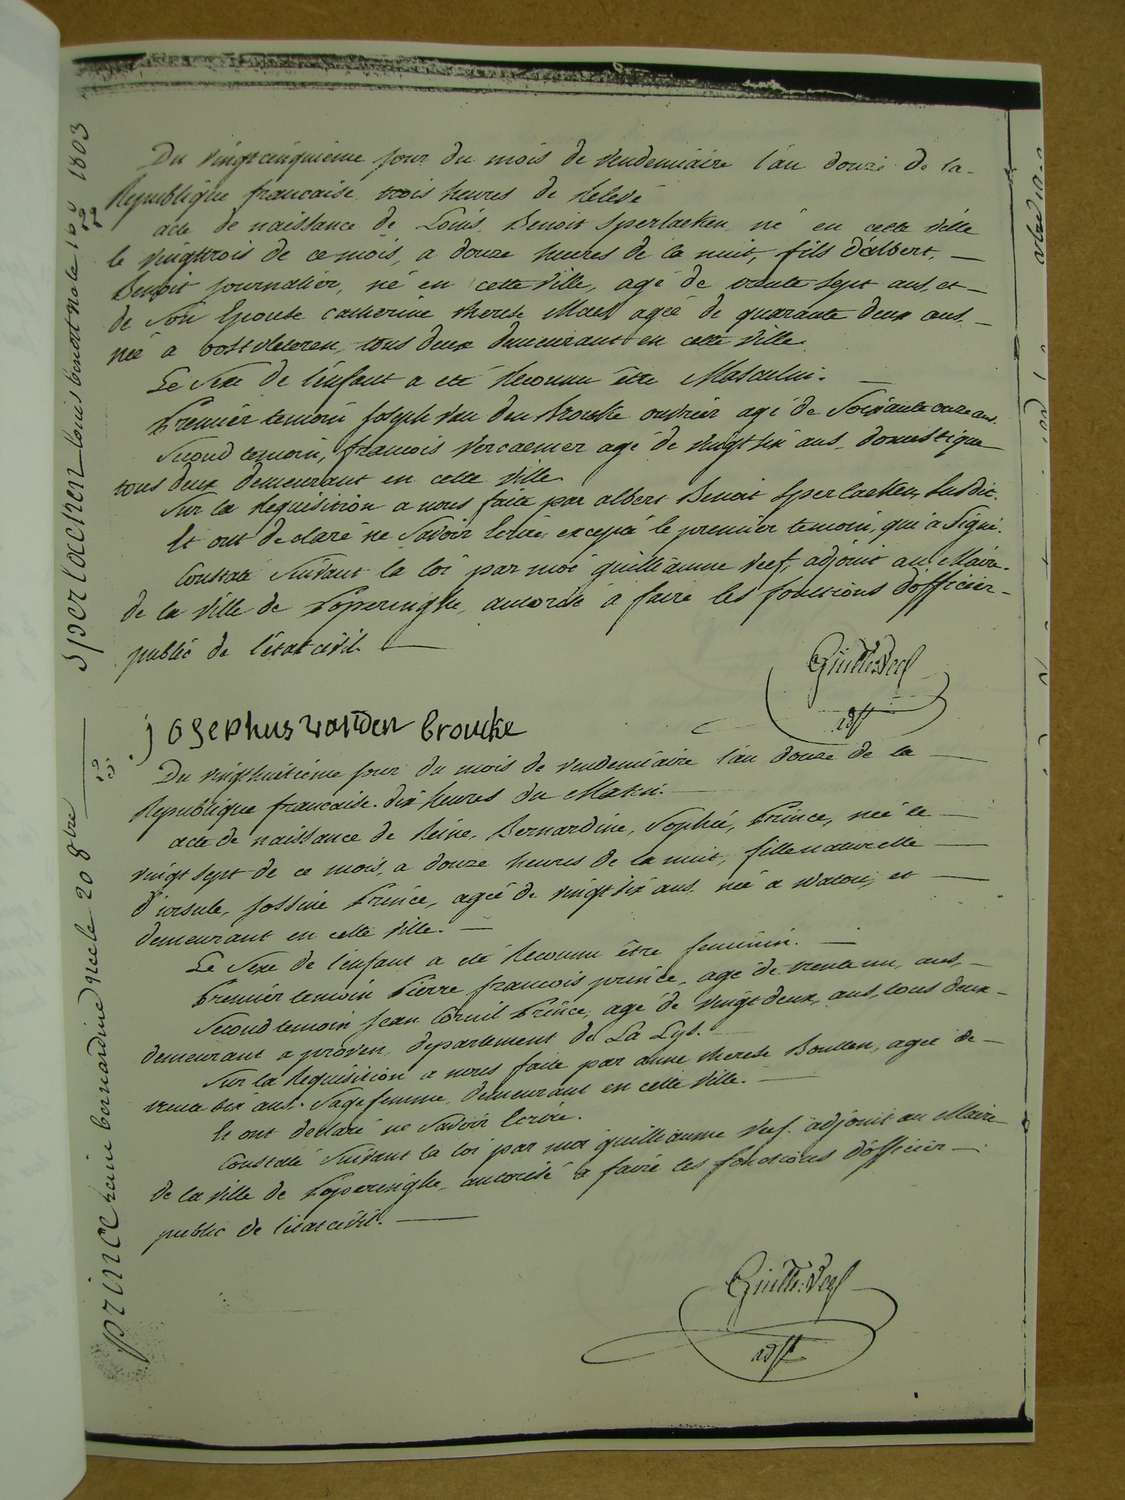 Du vingtcinquieme jour du mois de vendemiaire l'an douze de la
Republique francaise trois heures de Relevé
acte de naissance de Louis Benoit Sperlaeken né en cette ville
le vingttrois de ce mois, a douze heures de la nuit, fils d'albert,
Benoit journalier, né en cette ville, agé de trente sept ans, et
de Son Epouse catherine therese Mael agée de quarante deux ans
née a oostvleteren, tous deux demeurant en cette ville.
Le Sexe de l'enfant a eté Reconnu être Masculin.
Premier temoin Joseph van den Broucke ouvrier agé de Soixante onze ans.
Second temoin, francois vercaemer agé de vingt six ans domestique
tous deux demeurant en cette ville
Sur la Requisition a nous faite par albert Benoit Sperlaeken, Susdit.
Et ont declaré ne Savoir Ecrire, excepté le premier temoin, qui a Signé.
Constaté Suivant la loi par moi guilliaume veef, adjoint au Maire
de la ville de Poperinghe, autorisé a faire les fonctions d'officier
public de l'état civil.
Guille. Veef
adjt
josephus vanden broucke
Du vingthuitieme jour du mois de vendemiaire l'an douze de la
Republique francaise dix heures du Matin.
acte de naissance de Reine, Bernardine, Sophie, Prince, née le
vingt sept de ce mois, a douze heures de la nuit, fille naturelle
d'ursule, Jossine Prince, agée de vingt six ans née a watou, et
demeurant en cette ville.
Le Sexe de l'enfant a eté Reconnu être feminin.
Premier temoin Pierre francois prince, agé de trente un, ans,
Second temoin Jean Cornil Prince, agé de vingt deux, ans, tous deux
demeurant a proven departement de La Lys.
Sur la Requisition a nous faite par anne therese Boutten, agée de
trente six ans. Sage femme, demeurant en cette ville.
Et ont declaré ne Savoir Ecrire.
Constaté Suivant la loi par moi guilliaume veef. adjoint au Maire
de la ville de Poperinghe, autorisé a faire les fonctions d'officier
public de l'état civil.
Guille. Veef
adjt
Sperlaeken Louis benoit né le 1803
prince reine bernardine née le 20 8bre